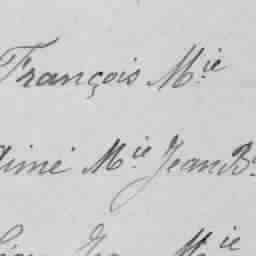 François M.ie
Aimé M.ie Jean B.
M.ie